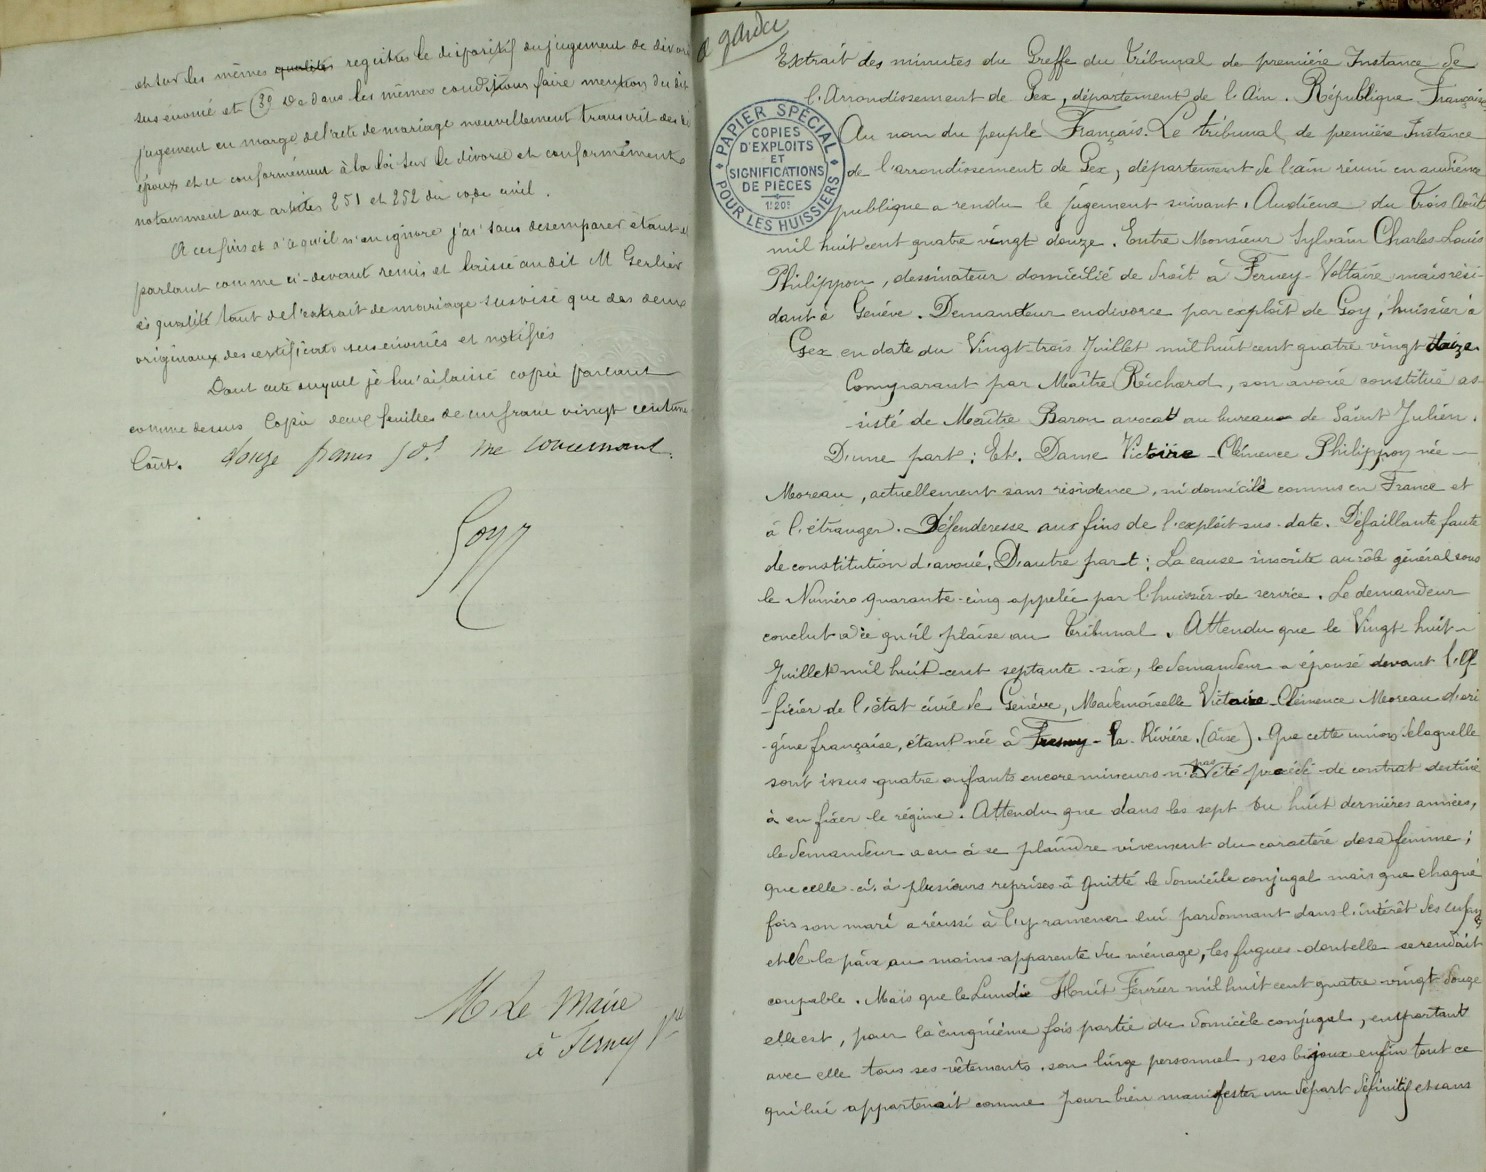 et sur les mêmes qualités registres le dispositif du jugement de divorce
sus énoncé et (3º De dans les mêmes conditions faire mention du dit
jugement en marge de l'acte de mariage nouvellement transcrit des
époux et ce conformément à la loi sur le divorce et conformément
notamment aux articles 251 et 252 du code civil.
A ces fins et à ce qu'il n'en ignore j'ai sans desemparer étant et
parlant comme ci-devant remis et laissé au dit M Gerlier
ès qualité tant de l'extrait de mariage susvisé que des deux
originaux des certificats sus énoncés et notifiés
Dont acte auquel je lui ai laissé copie parlant
comme dessus Copie deux feuilles de un franc vingt centimes
Coût. douze francs me concernant
Goy
M. Le Maire
à Ferney Vre
Extrait des minutes du Greffe du Tribunal de première Instance de
l'Arrondissement de Gex, département de l'Ain. République Française
Au nom du peuple Français. Le tribunal de première Instance
de l'arrondissement de Gex, département de l'ain réuni en audience
publique a rendu le jugement suivant. Audience du Trois Août
mil huit cent quatre vingt douze. Entre Monsieur Sylvain Charles-Louis
Philippon, dessinateur domicilié de droit à Ferney-Voltaire mais rési-
dant à Genève. Demandeur en divorce par exploit de Goy, huissier à
Gex en date du Vingt-trois Juillet mil huit cent quatre vingt douze
Comparant par Maître Reichard, son avoué constitué as-
sisté de Maître Baron avocat au bureau de Saint Julien.
D'une part; Et. Dame Victoire-Clémence Philippon née
Moreau, actuellement sans résidence, ni domicile connus en France et
à l'étranger. Défenderesse aux fins de l'exploit sus-date. Défaillante faute
de constitution d'avoué. D'autre part; La cause inscrite au rôle général sous
le Numéro quarante-cinq appelée par l'huissier de service. Le demandeur
conclut à ce qu'il plaise au Tribunal. Attendu que le Vingt-huit
Juillet mil huit cent septante-six, le demandeur a épousé devant l'Of-
ficier de l'état civil de Genève, Mademoiselle Victoire-Clémence Moreau d'ori
-gine française, étant née à Fresnoy-la-Rivière. (Oise). Que cette union de laquelle
sont issus quatre enfants encore mineurs n'a pas été précédé de contrat destiné
à en fixer le régime. Attendu que dans les sept ou huit dernières années,
le demandeur a eu à se plaindre vivement du caractère de sa femme;
que celle-ci à plusieurs reprises à quitté le domicile conjugal mais que chaque
fois son mari a réussi à l'y ramener lui pardonnant dans l'intérêt des enfants
et de la paix au moins apparente du ménage, les fugues dont elle se rendait
coupable. Mais que le Lundi Huit Février mil huit cent quatre-vingt douze
elle est, pour la cinquième fois partie du domicile conjugal, emportant
avec elle tous ses vêtements, son linge personnel, ses bijoux enfin tout ce
qui lui appartenait comme pour bien manifester un départ définitif et sans
PAPIER SPÉCIAL
COPIES
D'EXPLOITS
ET
SIGNIFICATIONS
DE PIÈCES
1f20c
POUR LES HUISSIERS